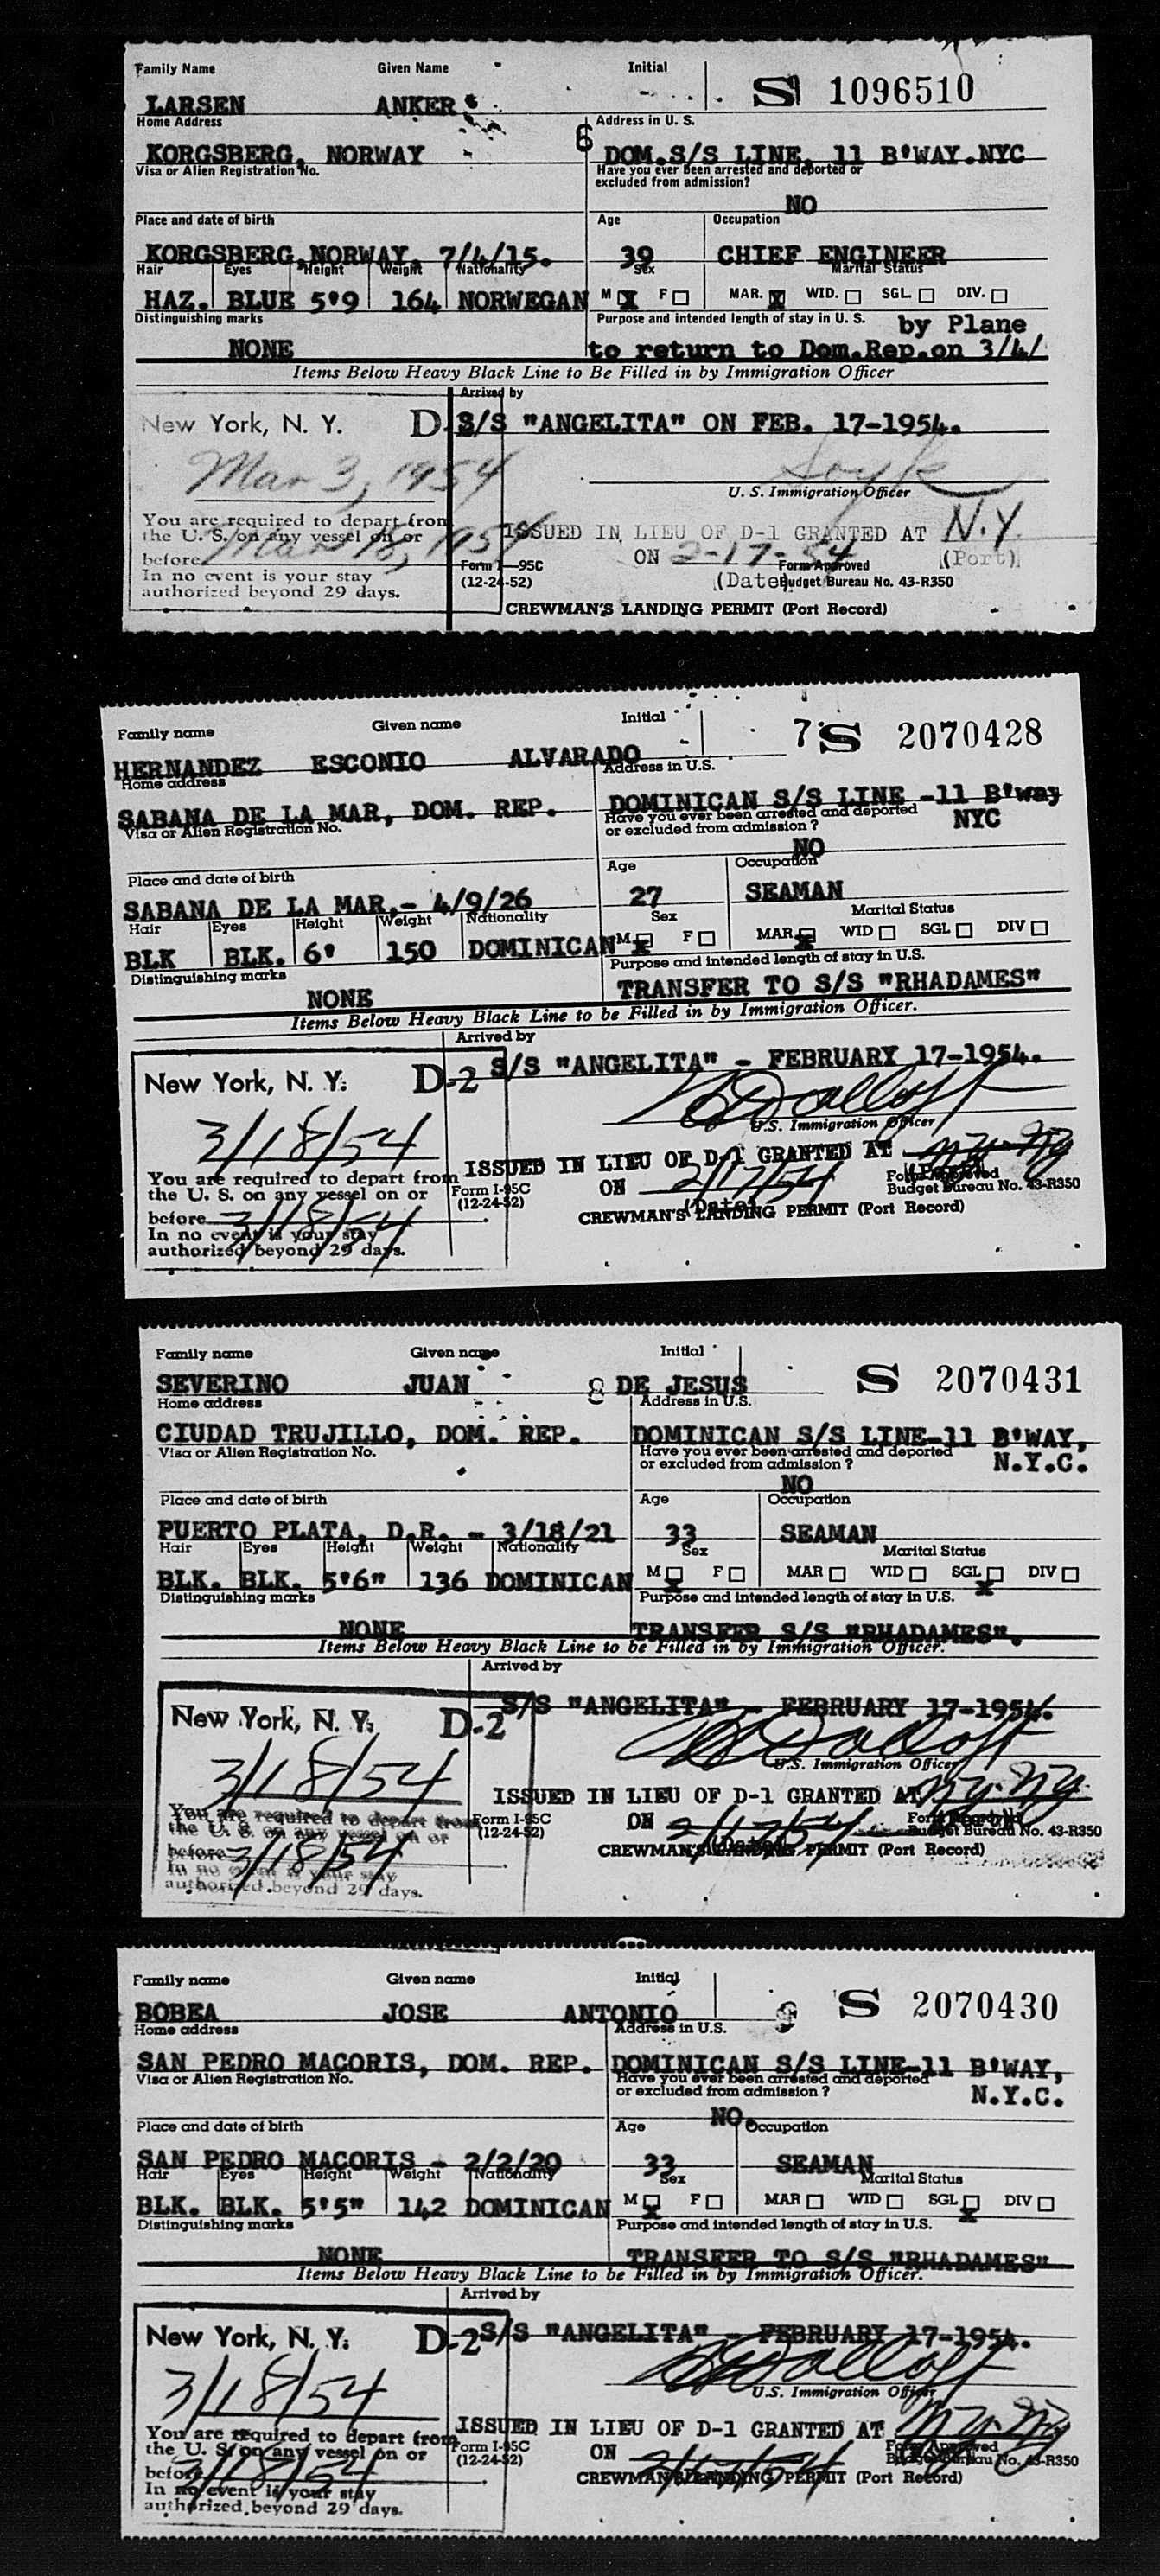 Family Name Given Name Initial S 1096510
LARSEN ANKER
Home Address Address in U. S.
6
KORGSBERG, NORWAY DOM.S/S LINE, 11 B'WAY.NYC
Visa or Alien Registration No. Have you ever been arrested and deported or
excluded from admission?
NO
Place and date of birth Age Occupation
KORGSBERG,NORWAY. 7/4/15. 39 CHIEF ENGINEER
Hair Eyes Height Weight Nationality Sex Marital Status
HAZ. BLUE 5'9 164 NORWEGAN M X F MAR. X WID. SGL. DIV.
Distinguishing marks Purpose and intended length of stay in U. S. by Plane
NONE to return to Dom.Rep.on 3/4/
Items Below Heavy Black Line to Be Filled in by Immigration Officer
Arrived by
New York, N. Y. D S/S "ANGELITA" ON FEB. 17-1954.
Mar 3, 1954
U. S. Immigration Officer
You are required to depart from
the U. S. on any vessel on or
before Mar 18, 1954
In no event is your stay
authorized beyond 29 days.
ISSUED IN LIEU OF D-1 GRANTED AT N.Y.
ON 2-17-54 (Port)
Form I-95C (Date) Form Approved
(12-24-52) Budget Bureau No. 43-R350
CREWMAN'S LANDING PERMIT (Port Record)
Family name Given name Initial 7 S 2070428
HERNANDEZ ESCONIO ALVARADO
Home address Address in U.S.
SABANA DE LA MAR, DOM. REP. DOMINICAN S/S LINE -11 B'way
Visa or Alien Registration No. Have you ever been arrested and deported NYC
or excluded from admission ?
NO
Place and date of birth Age Occupation
SABANA DE LA MAR,- 4/9/26 27 SEAMAN
Hair Eyes Height Weight Nationality Sex Marital Status
BLK BLK. 6' 150 DOMINICAN M X F MAR X WID SGL DIV
Distinguishing marks Purpose and intended length of stay in U.S.
NONE TRANSFER TO S/S "RHADAMES"
Items Below Heavy Black Line to be Filled in by Immigration Officer.
Arrived by
New York, N. Y. D-2 S/S "ANGELITA" - FEBRUARY 17-1954.
3/18/54
U.S. Immigration Officer
You are required to depart from
the U. S. on any vessel on or
before 3/18/54
In no event is your stay
authorized beyond 29 days.
ISSUED IN LIEU OF D-1 GRANTED AT N.Y. N.Y.
ON 2/17/54 (Port)
Form I-95C (Date) Form Approved
(12-24-52) Budget Bureau No. 43-R350
CREWMAN'S LANDING PERMIT (Port Record)
Family name Given name Initial S 2070431
SEVERINO JUAN 8 DE JESUS
Home address Address in U.S.
CIUDAD TRUJILLO, DOM. REP. DOMINICAN S/S LINE-11 B'WAY,
Visa or Alien Registration No. Have you ever been arrested and deported N.Y.C.
or excluded from admission ?
NO
Place and date of birth Age Occupation
PUERTO PLATA, D.R. - 3/18/21 33 SEAMAN
Hair Eyes Height Weight Nationality Sex Marital Status
BLK. BLK. 5'6" 136 DOMINICAN M X F MAR WID SGL X DIV
Distinguishing marks Purpose and intended length of stay in U.S.
NONE TRANSFER S/S "RHADAMES".
Items Below Heavy Black Line to be Filled in by Immigration Officer.
Arrived by
New York, N. Y. D-2 S/S "ANGELITA" - FEBRUARY 17-1954.
3/18/54
U.S. Immigration Officer
You are required to depart from
the U. S. on any vessel on or
before 3/18/54
In no event is your stay
authorized beyond 29 days.
ISSUED IN LIEU OF D-1 GRANTED AT N.Y. N.Y.
ON 2/17/54
Form I-95C (Date) Form Approved
(12-24-52) Budget Bureau No. 43-R350
CREWMAN'S LANDING PERMIT (Port Record)
Family name Given name Initial S 2070430
BOBEA JOSE ANTONIO 9
Home address Address in U.S.
SAN PEDRO MACORIS, DOM. REP. DOMINICAN S/S LINE-11 B'WAY,
Visa or Alien Registration No. Have you ever been arrested and deported N.Y.C.
or excluded from admission ?
NO.
Place and date of birth Age Occupation
SAN PEDRO MACORIS - 2/2/20 33 SEAMAN
Hair Eyes Height Weight Nationality Sex Marital Status
BLK. BLK. 5'5" 142 DOMINICAN M X F MAR WID SGL X DIV
Distinguishing marks Purpose and intended length of stay in U.S.
NONE TRANSFER TO S/S "RHADAMES"
Items Below Heavy Black Line to be Filled in by Immigration Officer.
Arrived by
New York, N. Y. D-2 S/S "ANGELITA" - FEBRUARY 17-1954.
3/18/54
U.S. Immigration Officer
You are required to depart from
the U. S. on any vessel on or
before 3/18/54
In no event is your stay
authorized beyond 29 days.
ISSUED IN LIEU OF D-1 GRANTED AT N.Y. N.Y.
ON 2/17/54
Form I-95C Form Approved
(12-24-52) Budget Bureau No. 43-R350
CREWMAN'S LANDING PERMIT (Port Record)